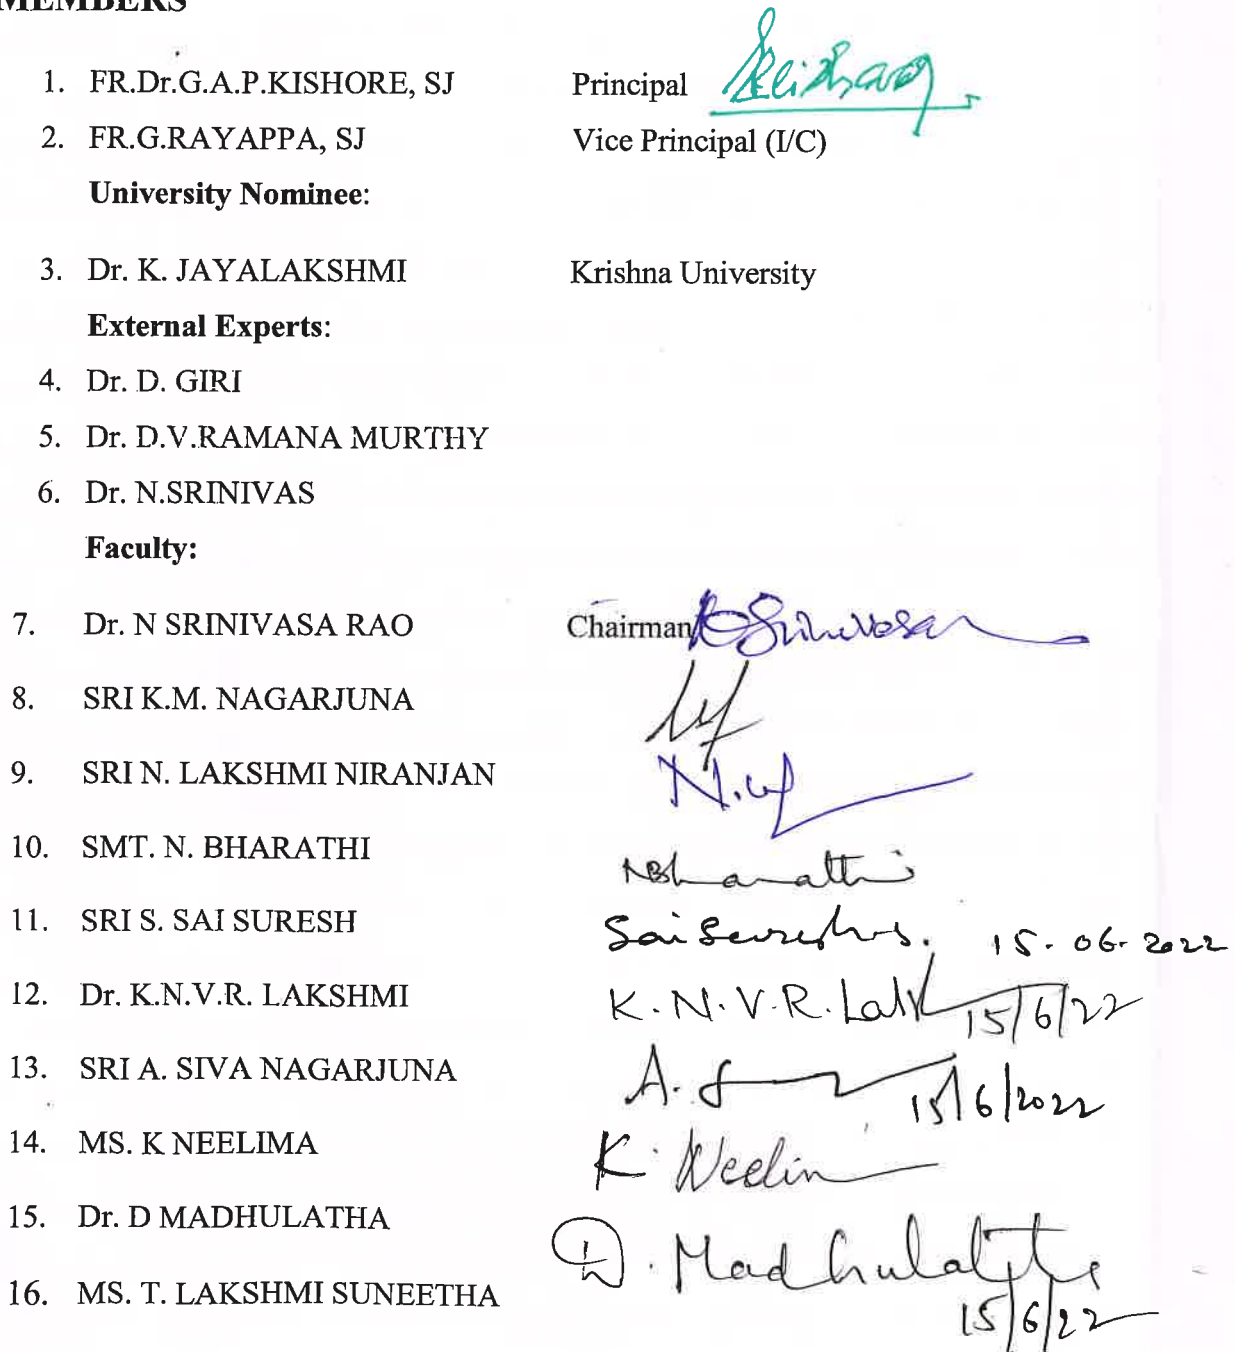 MEMBERS
1. FR.Dr.G.A.P.KISHORE, SJ Principal
2. FR.G.RAYAPPA, SJ Vice Principal (I/C)
University Nominee:
3. Dr. K. JAYALAKSHMI Krishna University
External Experts:
4. Dr. D. GIRI
5. Dr. D.V.RAMANA MURTHY
6. Dr. N.SRINIVAS
Faculty:
7. Dr. N SRINIVASA RAO Chairman
8. SRI K.M. NAGARJUNA
9. SRI N. LAKSHMI NIRANJAN
10. SMT. N. BHARATHI NBharathi
11. SRI S. SAI SURESH Sai 15-06-2022
12. Dr. K.N.V.R. LAKSHMI K.N.V.R. 15/6/22
13. SRI A. SIVA NAGARJUNA A. 15/6/2022
14. MS. K NEELIMA K.
15. Dr. D MADHULATHA D. Madhulatha
16. MS. T. LAKSHMI SUNEETHA 15/6/22